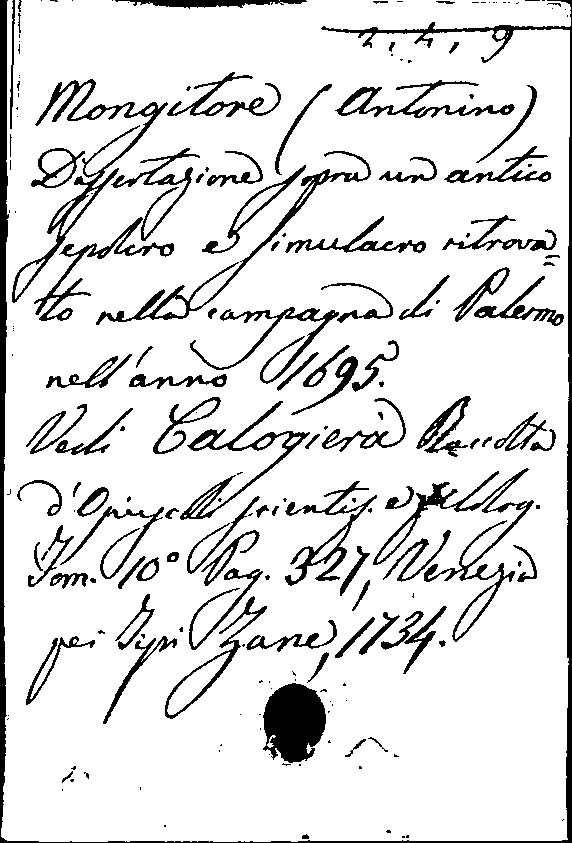 2. 4. 9
Mongitore (Antonino)
Dissertazione sopra un antico
sepolcro e simulacro ritrova=
to nella campagna di Palermo
nell'anno 1695.
Vedi Calogierà Raccolta
d'Opuscoli scientif. e filolog.
Tom. 10° Pag. 327, Venezia
pei Tipi Zane, 1734.